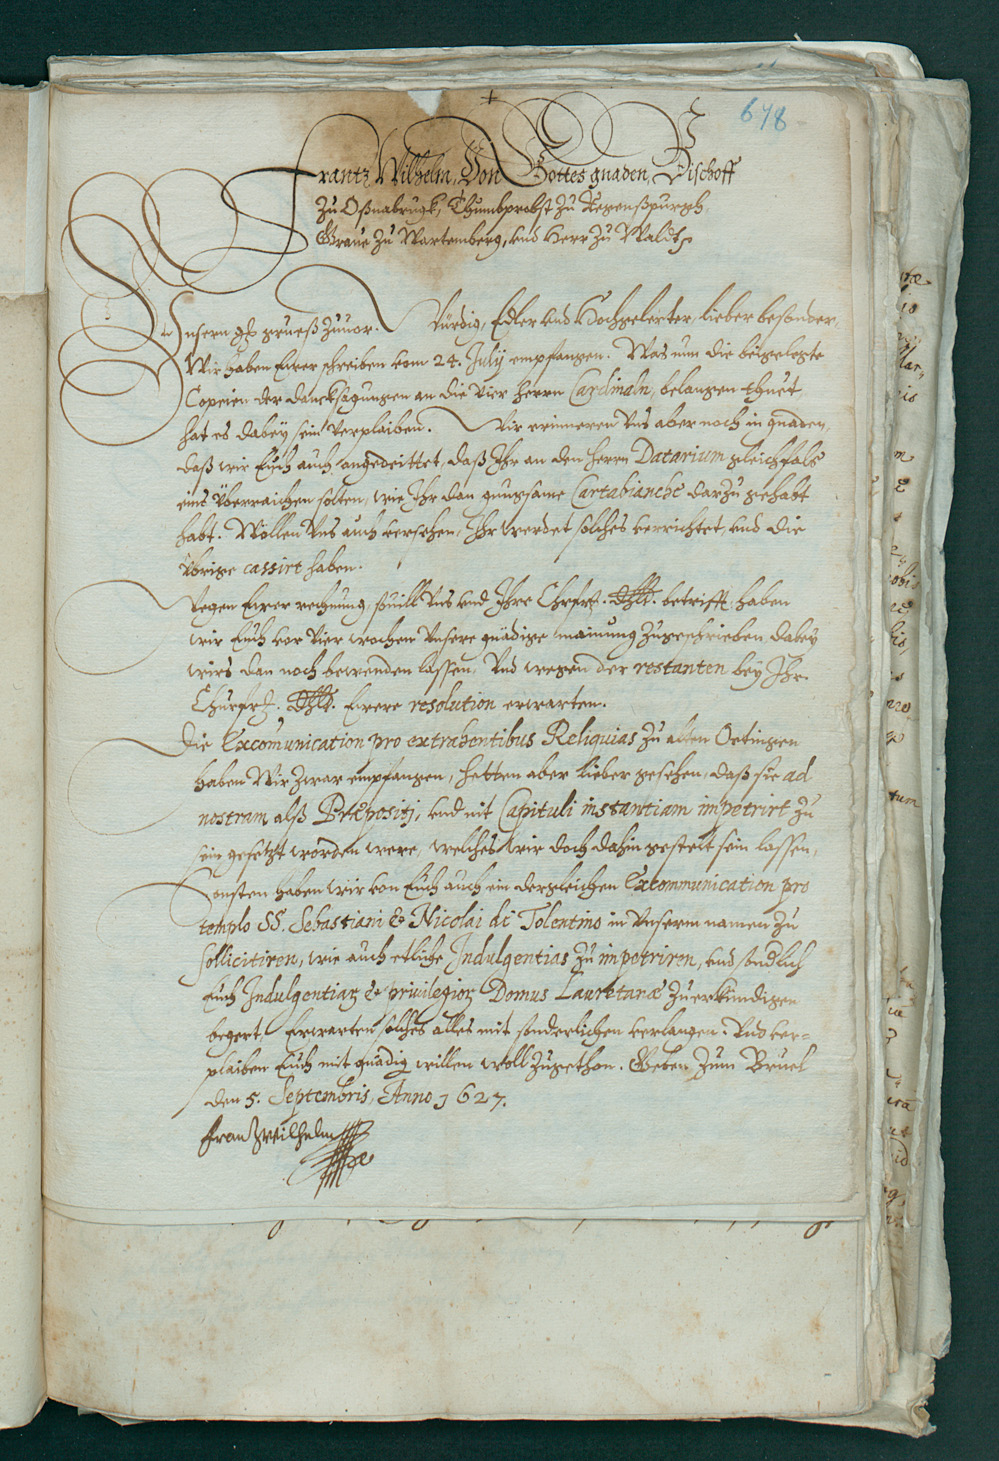 678
Frantz Wilhelm, Von Gottes gnaden, Bischoff
Zu Oßnabrugk, Thumbprobst Zu Regenspurgh
Graue Zu Wartemberg, vnd Herr Zu Waldt
Vnsern gruess Zuuor. Würdig, Edler vnd Hochgelerter, lieber besonder.
Wir haben Ewer schreiben vom 24. July empfangen. Was nun die beigelegte
Copeien der dancksagungen an die Vier herrn Cardinaln, belangen thuet,
hat es dabey sein Verplaiben. Wir erinneren Vns aber noch in gnaden,
daß wir Euch auch angedeittet, daß Ihr an den herrn Datarium gleichfals
eins Vberraichen solten, wie Ihr dan gnugsame Cartabianche darzu gehabt
habt. Wöllen Vns auch versehen, Ihr werdet solches verrichtet, vnd die
Vbrige cassirt haben.
Wegen Ewrer rechnung, souill Vns vnd Ihre Chrfr. Dhlt. betrifft haben
wir Euch vor Vier wochen Vnsere gnädige mainung Zugeschrieben, dabey
wirs dan noch bewenden lassen, Vnd wegen der restanten bey Ihr.
Churfr. Dhlt. Ewere resolution erwarten.
Die Excomunication pro extrahentibus Reliquias Zu alten Oetingen
haben Wir Zwar empfangen, hetten aber lieber gesehen, daß sie ad
nostram alß Præpositj, vnd nit Capituli instantiam impetrirt Zu
sein gesetzt worden were, welches wir doch dahin gestelt sein lassen,
Sonsten haben wir von Euch auch ein dergleichen Excommunication pro
templo SS. Sebastiani & Nicolai de Tolentino in Vnserm namen Zu
sollicitiren, wie auch etliche Indulgentias Zu impetriren, vnd endlich
Euch Indulgentiar & priuilegior Domus Lauretanæ Zuerkündigen
begert, Erwarten solches alles mit sonderlichen verlangen. Vnd ver-
plaiben Euch mit gnädig willen woll Zugethan. Geben Zum Bruel
den 5. Septembris, Anno 1627.
Franz Wilhelm